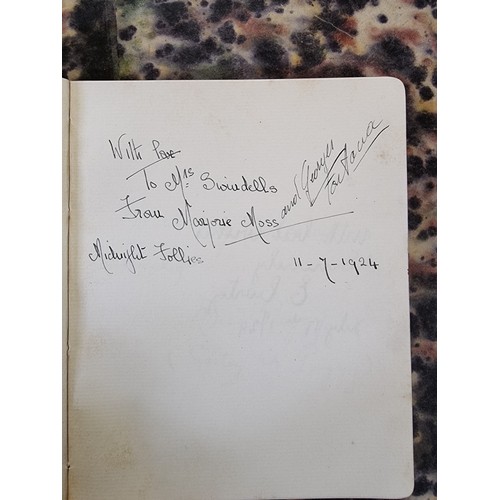 With love
To Mrs Swindells
From Marjorie Moss
and Georges
Fontana
Midnight Follies
11-7-1924